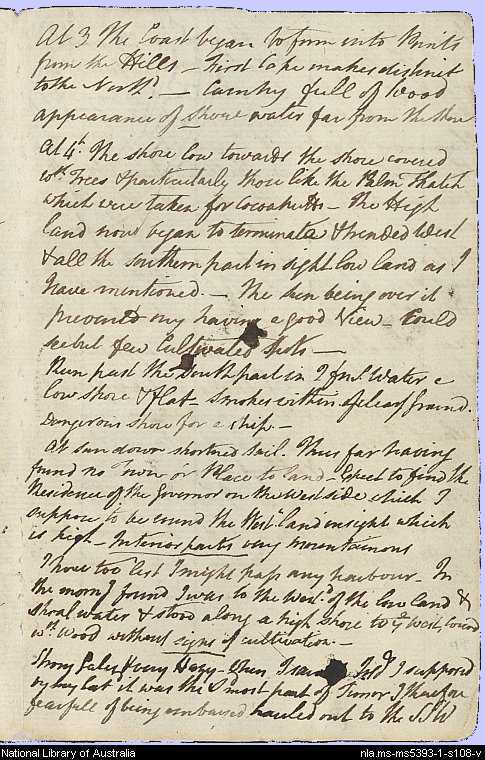 At 3 The Coast began to form into Points
from the Hills – First Cape makes distinct
to the North^d. – Country full of Wood
appearance of shore water far from the shore
At 4^h. The shore low towards the shore covered
w^th. Trees & particularly those like the Palm Thatch
which were taken for cocoanutts – The High
land now began to terminate & trended West
& all the southern part in sight low land as I
have mentioned. – The sun being over it
prevented my having a good View – Could
see but few Cultivated spots –
Run past the South part in 7 fms. Water a
low shore & flat smokes within of clear ground.
Dangerous shore for a ship. –
At sun down shortned sail. Thus far having
found no Town or Place to land – Expect to find the
Residence of the Governor on the West side which I
suppose to be round the West^n. land in sight which
is high – Interior parts very mountainous
I have too last I might pass any harbour. In
the morn^g found I was to the West^d. of the low land &
shoal water & stood along a high shore to y^e West, covered
w^th. Wood without signs of cultivation. –
Strong Gales & very Hazy – Open I saw Isl^d. I supposed
by my lat it was the S most part of Timor I therefore
fearfull of being embaised hauled out to the SSW
National Library of Australia
nla.ms-ms5393-1-s108-v